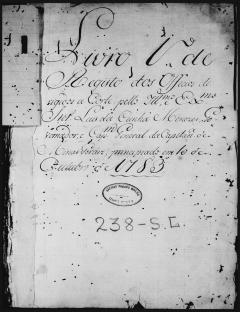 Livro V. de
Registo dos Officios de
a Corte pello Illmo e Exmo
Snr. Luis da Cunha Menezes Go
vernador, e Capm General da Capitania de
Minas Geraes, principiado em 10 de
Outubro de 1783
238-S.C.